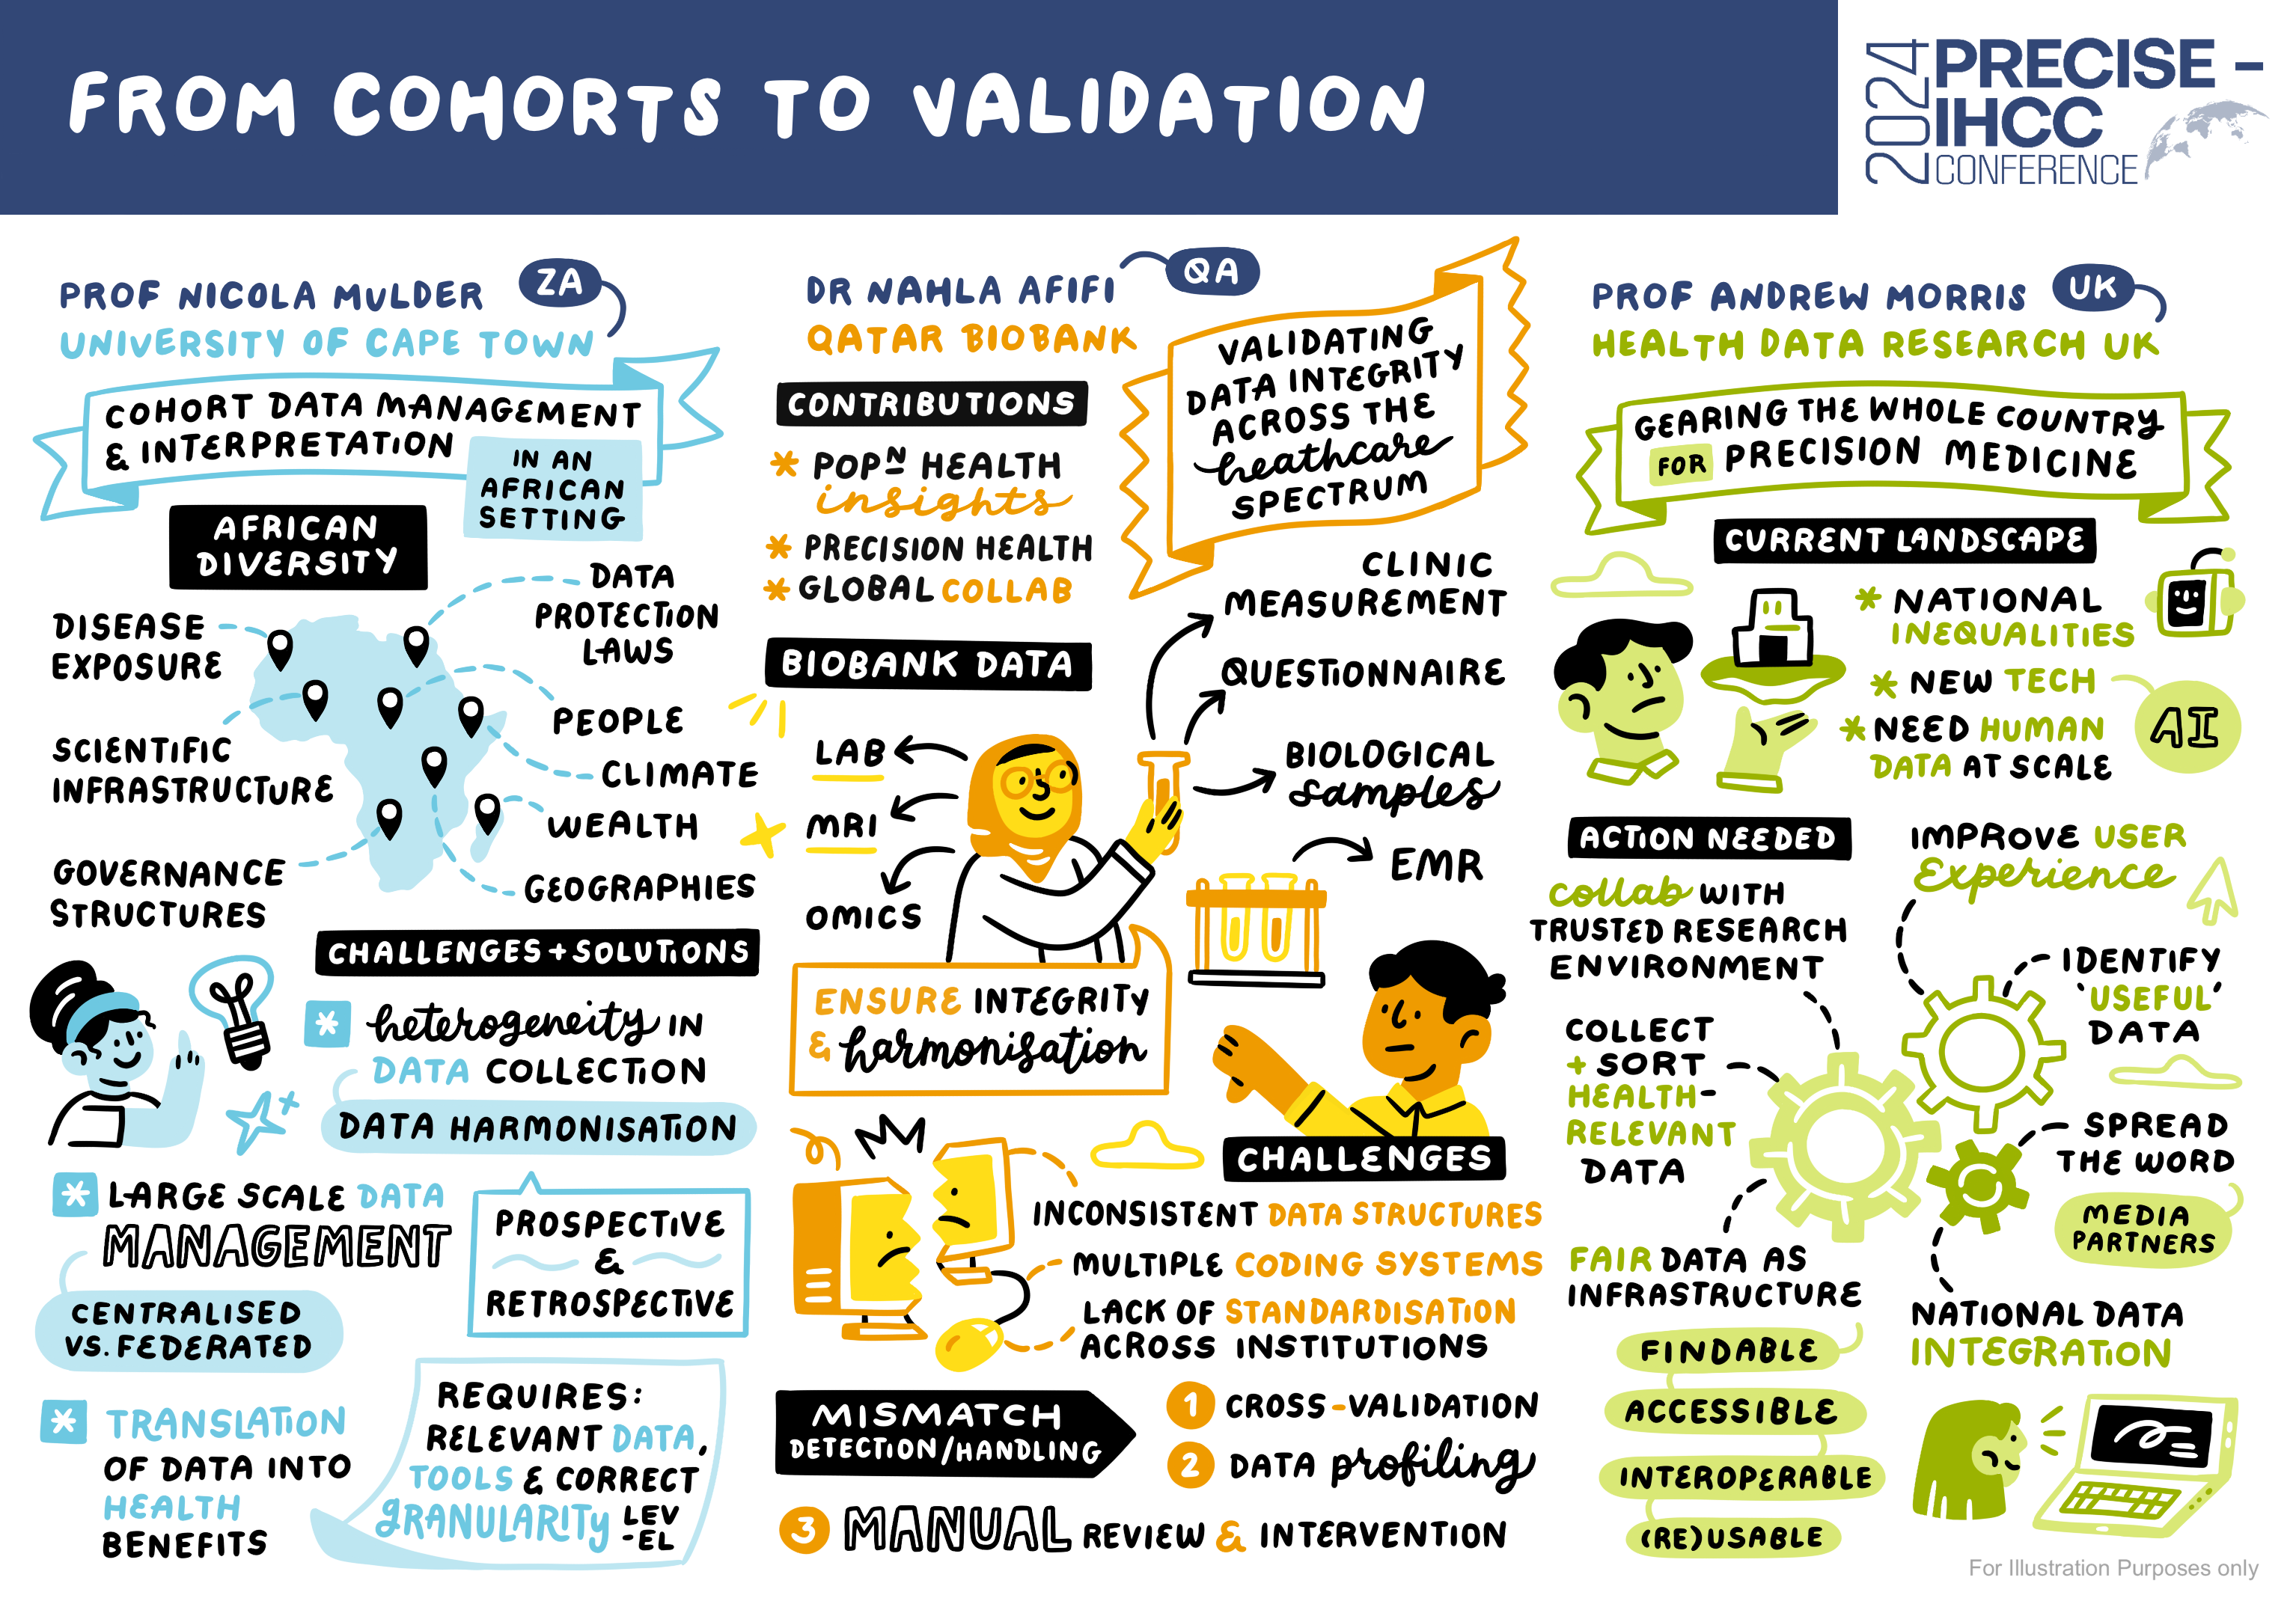 FROM COHORTS TO VALIDATION
2024
PRECISE –
IHCC
CONFERENCE
PROF NICOLA MULDER
ZA
UNIVERSITY OF CAPE TOWN
COHORT DATA MANAGEMENT
& INTERPRETATION
IN AN
AFRICAN
SETTING
AFRICAN
DIVERSITY
DISEASE
EXPOSURE
SCIENTIFIC
INFRASTRUCTURE
GOVERNANCE
STRUCTURES
DATA
PROTECTION
LAWS
PEOPLE
CLIMATE
WEALTH
GEOGRAPHIES
CHALLENGES + SOLUTIONS
* heterogeneity IN
DATA COLLECTION
DATA HARMONISATION
* LARGE SCALE DATA
MANAGEMENT
CENTRALISED
VS. FEDERATED
PROSPECTIVE
&
RETROSPECTIVE
* TRANSLATION
OF DATA INTO
HEALTH
BENEFITS
REQUIRES:
RELEVANT DATA,
TOOLS & CORRECT
GRANULARITY LEV
-EL
DR NAHLA AFIFI
QA
QATAR BIOBANK
VALIDATING
DATA INTEGRITY
ACROSS THE
heathcare
SPECTRUM
CONTRIBUTIONS
* POPN HEALTH
insights
* PRECISION HEALTH
* GLOBAL COLLAB
BIOBANK DATA
LAB
MRI
OMICS
CLINIC
MEASUREMENT
QUESTIONNAIRE
BIOLOGICAL
samples
EMR
ENSURE INTEGRITY
& harmonisation
CHALLENGES
INCONSISTENT DATA STRUCTURES
MULTIPLE CODING SYSTEMS
LACK OF STANDARDISATION
ACROSS INSTITUTIONS
MISMATCH
DETECTION/HANDLING
1 CROSS-VALIDATION
2 DATA profiling
3 MANUAL REVIEW & INTERVENTION
PROF ANDREW MORRIS
UK
HEALTH DATA RESEARCH UK
GEARING THE WHOLE COUNTRY
FOR PRECISION MEDICINE
CURRENT LANDSCAPE
* NATIONAL
INEQUALITIES
* NEW TECH
AI
* NEED HUMAN
DATA AT SCALE
ACTION NEEDED
collab WITH
TRUSTED RESEARCH
ENVIRONMENT
COLLECT
+ SORT
HEALTH-
RELEVANT
DATA
FAIR DATA AS
INFRASTRUCTURE
FINDABLE
ACCESSIBLE
INTEROPERABLE
(RE)USABLE
IMPROVE USER
Experience
IDENTIFY
'USEFUL'
DATA
SPREAD
THE WORD
MEDIA
PARTNERS
NATIONAL DATA
INTEGRATION
For Illustration Purposes only